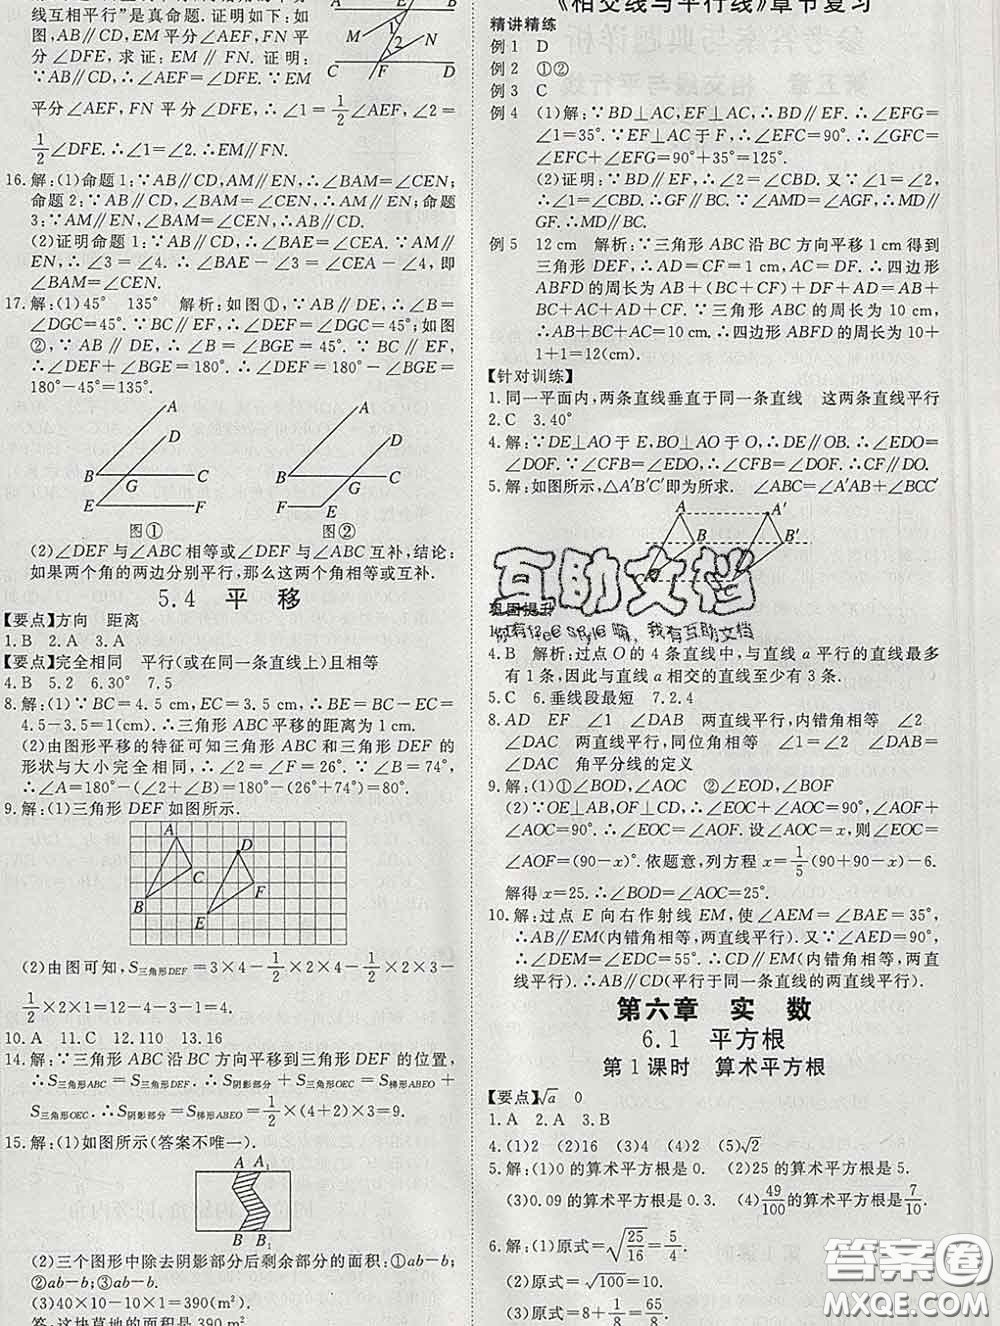 线互相平行”是真命题. 证明如下:如
图,AB∥CD,EM平分∠AEF,FN平
分∠DFE,求证:EM∥FN. 证明:
∵AB∥CD,∴∠AEF=∠DFE.∵EM
平分∠AEF,FN平分∠DFE,∴∠1=1/2∠AEF,∠2=
1/2∠DFE.∴∠1=∠2.∴EM∥FN.
16.解:(1)命题1:∵AB∥CD,AM∥EN,∴∠BAM=∠CEN;
命题2:∵AB∥CD,∠BAM=∠CEN,∴AM∥EN;命题
3:∵AM∥EN,∠BAM=∠CEN,∴AB∥CD.
(2)证明命题1:∵AB∥CD,∴∠BAE=∠CEA.∵AM∥
EN,∴∠3=∠4.∴∠BAE-∠3=∠CEA-∠4,即
∠BAM=∠CEN.
17.解:(1)45° 135° 解析:如图①,∵AB∥DE,∴∠B=
∠DGC=45°.∵BC∥EF,∴∠DEF=∠DGC=45°;如图
②,∵AB∥DE,∴∠B=∠BGE=45°.∵BC∥EF,
∴∠DEF+∠BGE=180°.∴∠DEF=180°-∠BGE=
180°-45°=135°.
A D B G C E F
图①
A D B G C E F
图②
(2)∠DEF与∠ABC相等或∠DEF与∠ABC互补,结论:
如果两个角的两边分别平行,那么这两个角相等或互补.
5.4 平移
【要点】方向 距离
1.B 2.A 3.A
【要点】完全相同 平行(或在同一条直线上)且相等
4.B 5.2 6.30° 7.5
8.解:(1)∵BC=4.5 cm,EC=3.5 cm,∴BE=BC-EC=
4.5-3.5=1(cm).∴三角形ABC平移的距离为1 cm.
(2)由图形平移的特征可知三角形ABC和三角形DEF的
形状与大小完全相同,∴∠2=∠F=26°.∵∠B=74°,
∴∠A=180°-(∠2+∠B)=180°-(26°+74°)=80°.
9.解:(1)三角形DEF如图所示.
A D C F B E
(2)由图可知,S三角形DEF=3×4-1/2×2×4-1/2×2×3-
1/2×2×1=12-4-3-1=4.
10.A 11.C 12.110 13.16
14.解:∵三角形ABC沿BC方向平移到三角形DEF的位置,
∴S三角形ABC=S三角形DEF.∴S阴影部分+S三角形OEC=S梯形ABEO+
S三角形OEC.∴S阴影部分=S梯形ABEO=1/2×(4+2)×3=9.
15.解:(1)如图所示(答案不唯一).
A A₁
B B₁
(2)三个图形中除去阴影部分后剩余部分的面积:①ab-b;
②ab-b;③ab-b.
(3)40×10-10×1=390(m²).
答:这块草地的面积是390 m².
《相交线与平行线》章节复习
精讲精练
例1 D
例2 ①②
例3 C
例4 (1)解:∵BD⊥AC,EF⊥AC,∴BD∥EF.∴∠EFG
=∠1=35°.∵EF⊥AC于F,∴∠EFC=90°.∴∠GFC
=∠EFC+∠EFG=90°+35°=125°.
(2)证明:∵BD∥EF,∴∠2=∠CBD.又∵∠1=∠2,
∴∠1=∠CBD.∴GF∥BC.∵∠AMD=∠AGF,
∴MD∥GF.∴MD∥BC.
例5 12 cm 解析:∵三角形ABC沿BC方向平移1 cm得到
三角形DEF,∴AD=CF=1 cm;∴四边形
ABFD的周长为AB+(BC+CF)+DF+AD=AB+
BC+AC+AD+CF.∵三角形ABC的周长为10 cm,
∴AB+BC+AC=10 cm.∴四边形ABFD的周长为10+
1+1=12(cm).
【针对训练】
1.同一平面内,两条直线垂直于同一条直线 这两条直线平行
2.C 3.40°
4.解:∵DE⊥AO于E,BO⊥AO于O,∴DE∥OB.∴∠EDO=
∠DOF.∵∠CFB=∠EDO,∴∠CFB=∠DOF.∴CF∥DO.
5.解:如图所示,△A′B′C′即为所求. ∠ABC=∠A′AB+∠BCC′
A A′
B B′
互助文档
巩固提升
你有free style嘛,我有互助文档
4.B 解析:过点O的4条直线中,与直线a平行的直线最多
有1条,因此与直线a相交的直线至少有3条.
5.C 6.垂线段最短 7.2.4
8.AD EF ∠1 ∠DAB 两直线平行,内错角相等 ∠2
∠DAC 两直线平行,同位角相等 ∠1=∠2 ∠DAB=
∠DAC 角平分线的定义
9.解:(1)①∠BOD,∠AOC ②∠EOD,∠BOF
(2)∵OE⊥AB,OF⊥CD,∴∠EOB=90°,∠AOF+
∠AOC=90°.∴∠AOC=90°-∠AOF.设∠AOC=x,则∠EOC=
∠AOF=(90-x)°.依题意,列方程x=1/5(90+90-x)-6.
解得x=25.∴∠BOD=∠AOC=25°.
10.解:过点E向右作射线EM,使∠AEM=∠BAE=35°,
∴AB∥EM(内错角相等,两直线平行).又∵∠AED=90°,
∴∠DEM=∠EDC=55°.∴CD∥EM(内错角相等,两直
线平行).∴AB∥CD(平行于同一条直线的两直线平行).
第六章 实数
6.1 平方根
第1课时 算术平方根
【要点】√a 0
1.A 2.A 3.B
4.(1)2 (2)16 (3)4 (4)2 (5)√2
5.解:(1)0的算术平方根是0. (2)25的算术平方根是5.
(3)0.09的算术平方根是0.3. (4)49/100的算术平方根是7/10.
6.解:(1)原式=√(25/16)=5/4.
(2)原式=√100=10.
(3)原式=8+1/8=65/8.
答案圈
MXQE.COM